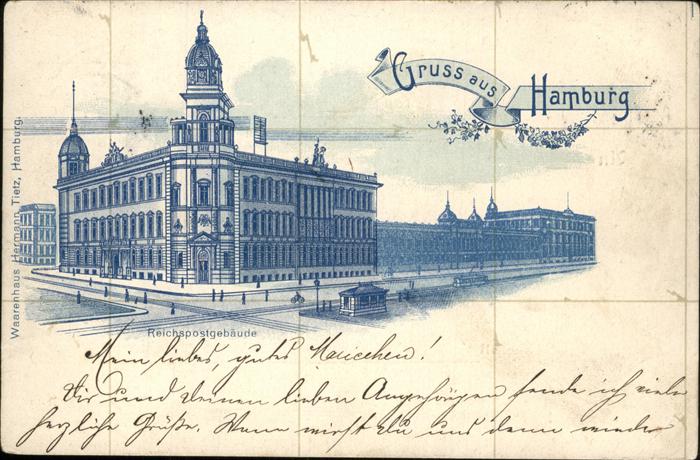 Gruss aus Hamburg
Waarenhaus Hermann Tietz, Hamburg.
Reichspostgebäude
Mein liebes, gutes Mariechen!
Dir und Deinen lieben Angehörigen sende ich viele
herzliche Grüße. Wann wirst Du uns denn wieder